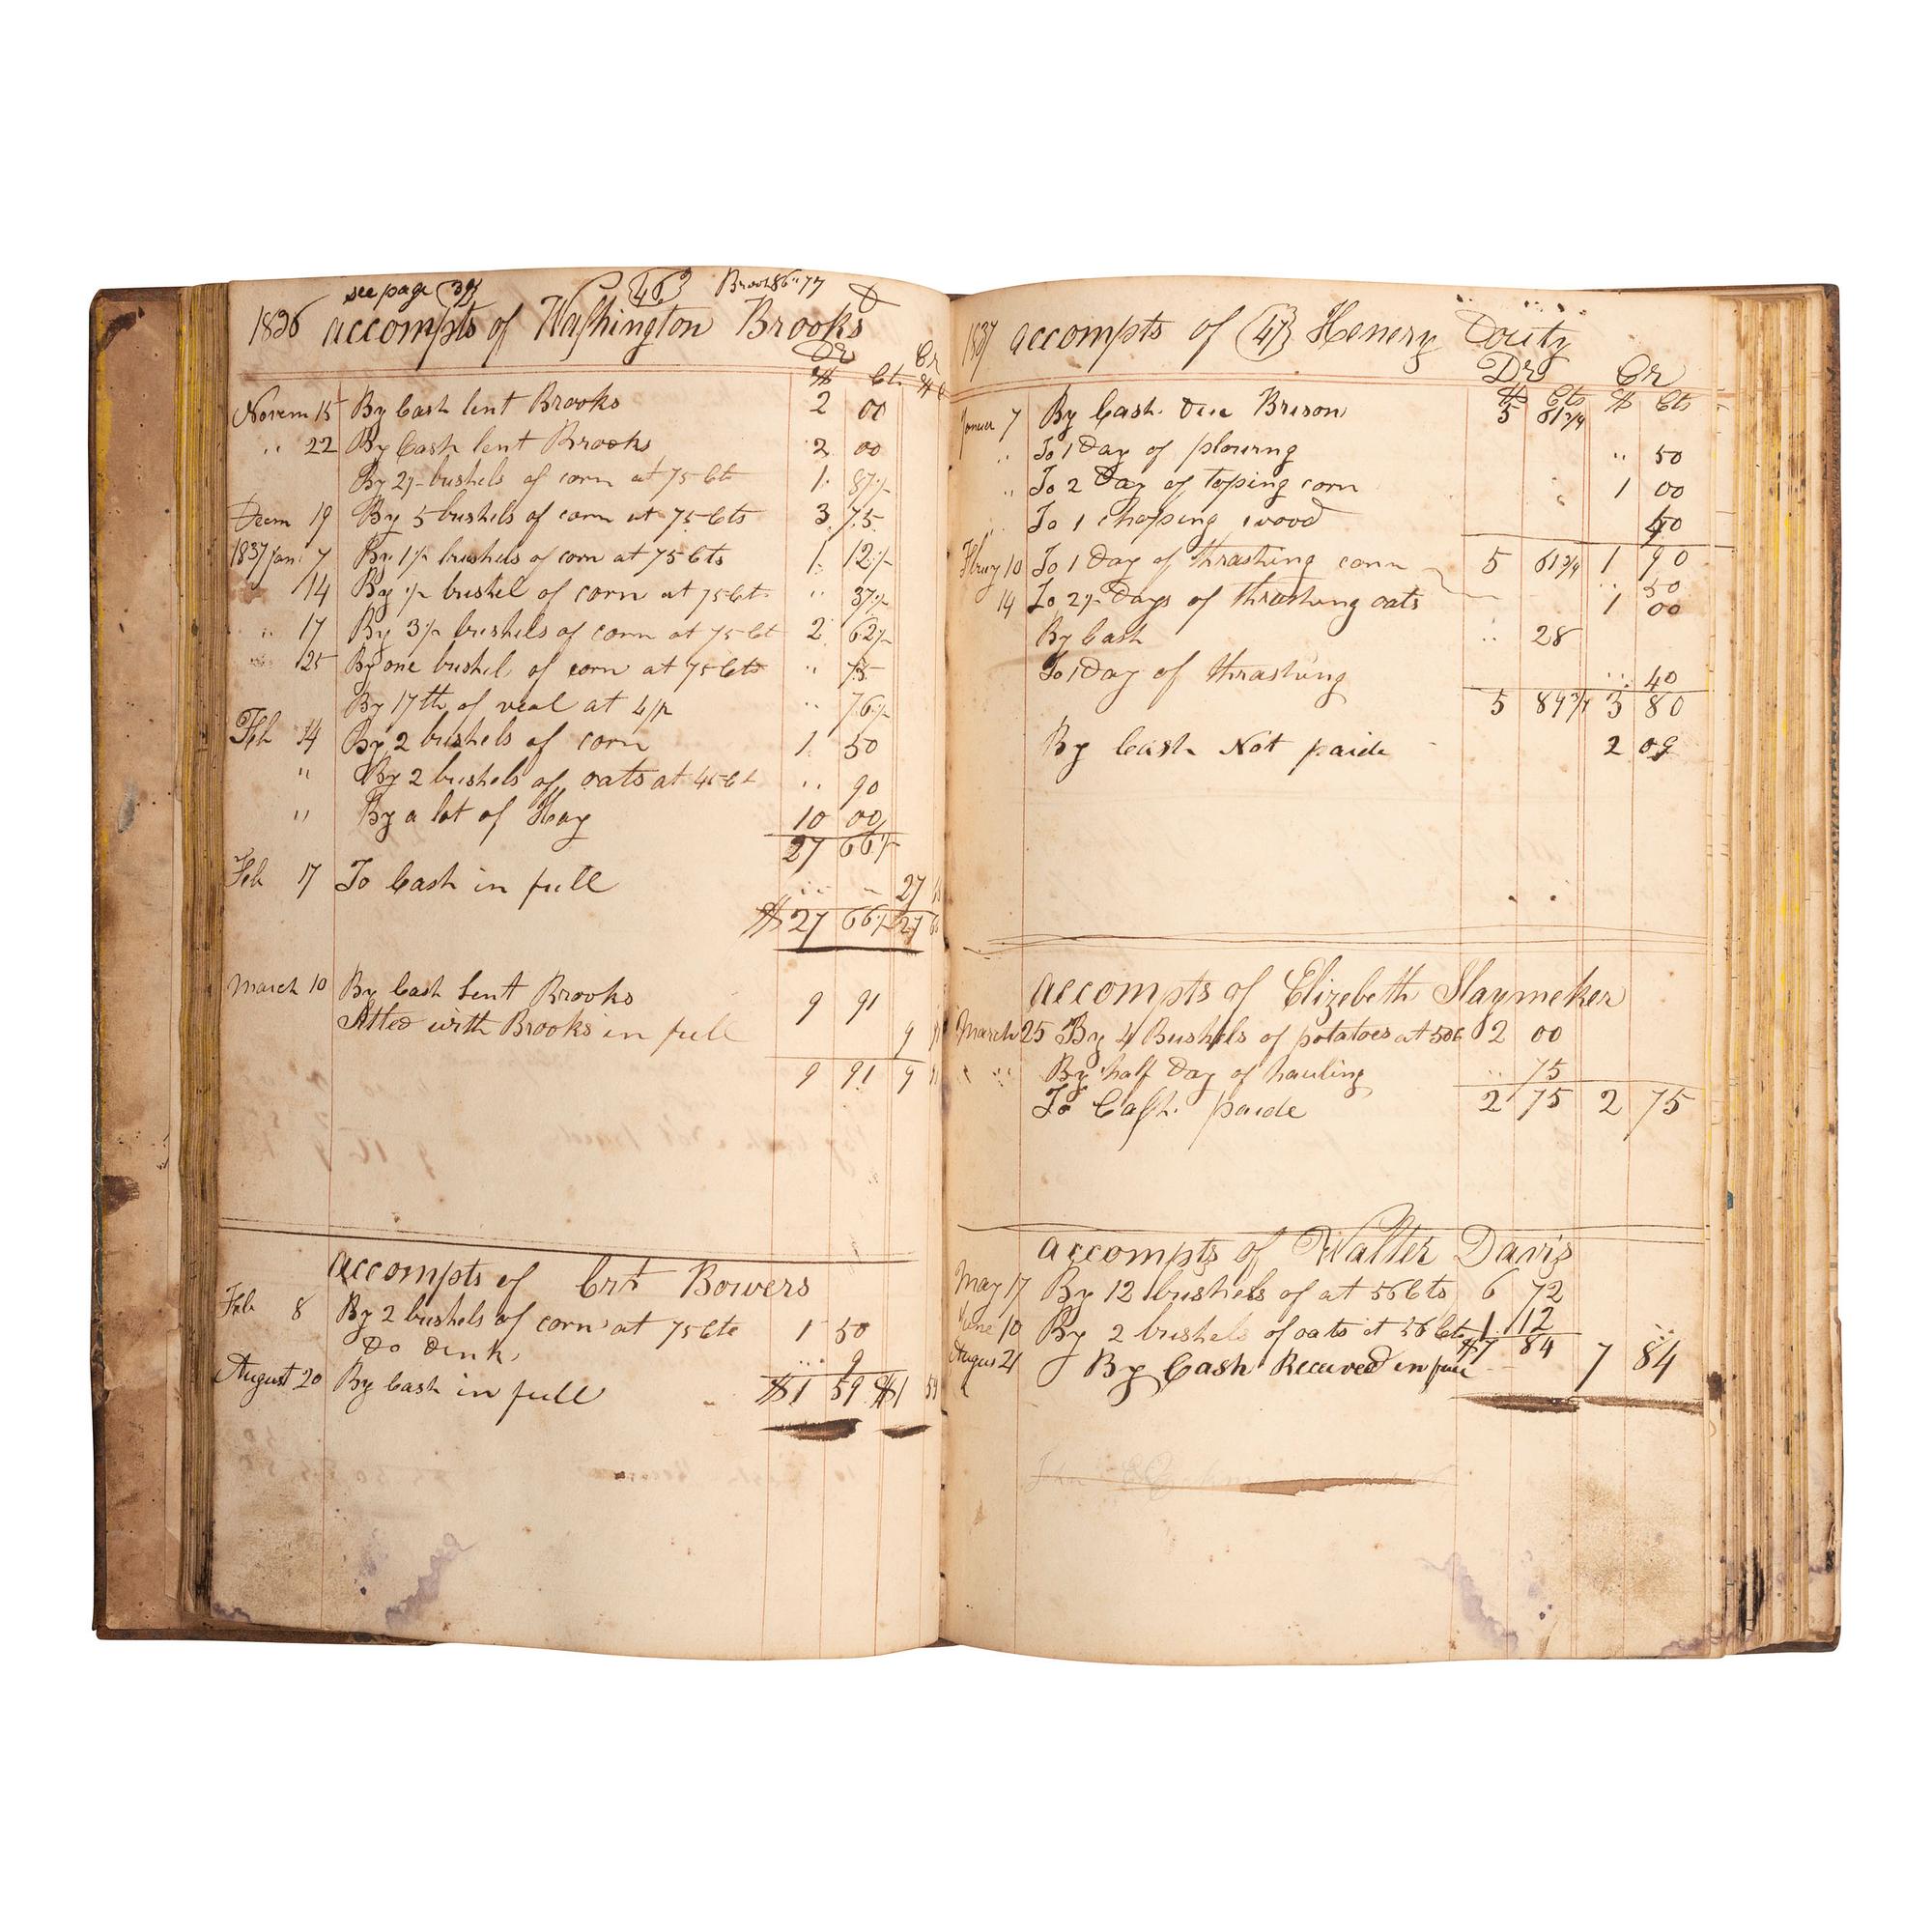 see page (39) (46) Brooks 86 " 77
1836 accompts of Washington Brooks
Dr Cr
$ Ct. $
Novem 15 By Cash lent Brooks 2 00
" 22 By Cash lent Brooks 2 00
By 2 1/2 bushels of corn at 75 Cts 1 87 1/2
Decm 19 By 5 bushels of corn at 75 Cts 3 75
1837 Jan 7 By 1 1/2 bushels of corn at 75 Cts 1 12 1/2
14 By 1/2 bushel of corn at 75 Ct " 37 1/2
" 17 By 3 1/2 bushels of corn at 75 Ct 2 62 1/2
25 By one bushel of corn at 75 Cts " 75
By 17 th of veal at 4 1/2 " 76 1/2
Feb 14 By 2 bushels of corn 1 50
" By 2 bushels of oats at 45 Ct " 90
" By a lot of Hay 10 00
27 66 1/2
Feb 17 To Cash in full 27
$27 66 1/2 27
March 10 By Cash Lent Brooks 9 91
Stled with Brooks in full 9
9 91 9
accompts of Crt Bowers
Feb 8 By 2 bushels of corn at 75 Cts 1 50
Do 9
August 20 By Cash in full $1 59 $1 59
1837 accompts of (47) Henery Douty
Dr Cr
$ Cts $ Cts
7 By Cash Due Brison 5 61 3/4
" To 1 Day of plouing " 50
" To 2 Day of toping corn 1 00
To 1 choping wood 40
10 To 1 Day of thrashing corn 5 61 3/4 1 90
50
14 To 2 1/2 Days of thrashing oats 1 00
By Cash " 28
To 1 Day of thrashing " 40
5 89 3/4 3 80
By Cash Not paide 2 09
accompts of Elizebeth Slaymeker
March 25 By 4 Bushels of potatoes at 50 C 2 00
By half Day of hauling " 75
To Cash paide 2 75 2 75
accompts of Walter Davis
May 17 By 12 bushels of at 56 Cts 6 72
June 10 By 2 bushels of oats at 56 Cts 1 12
$7 84
Augus 21 By Cash Received in full 7 84